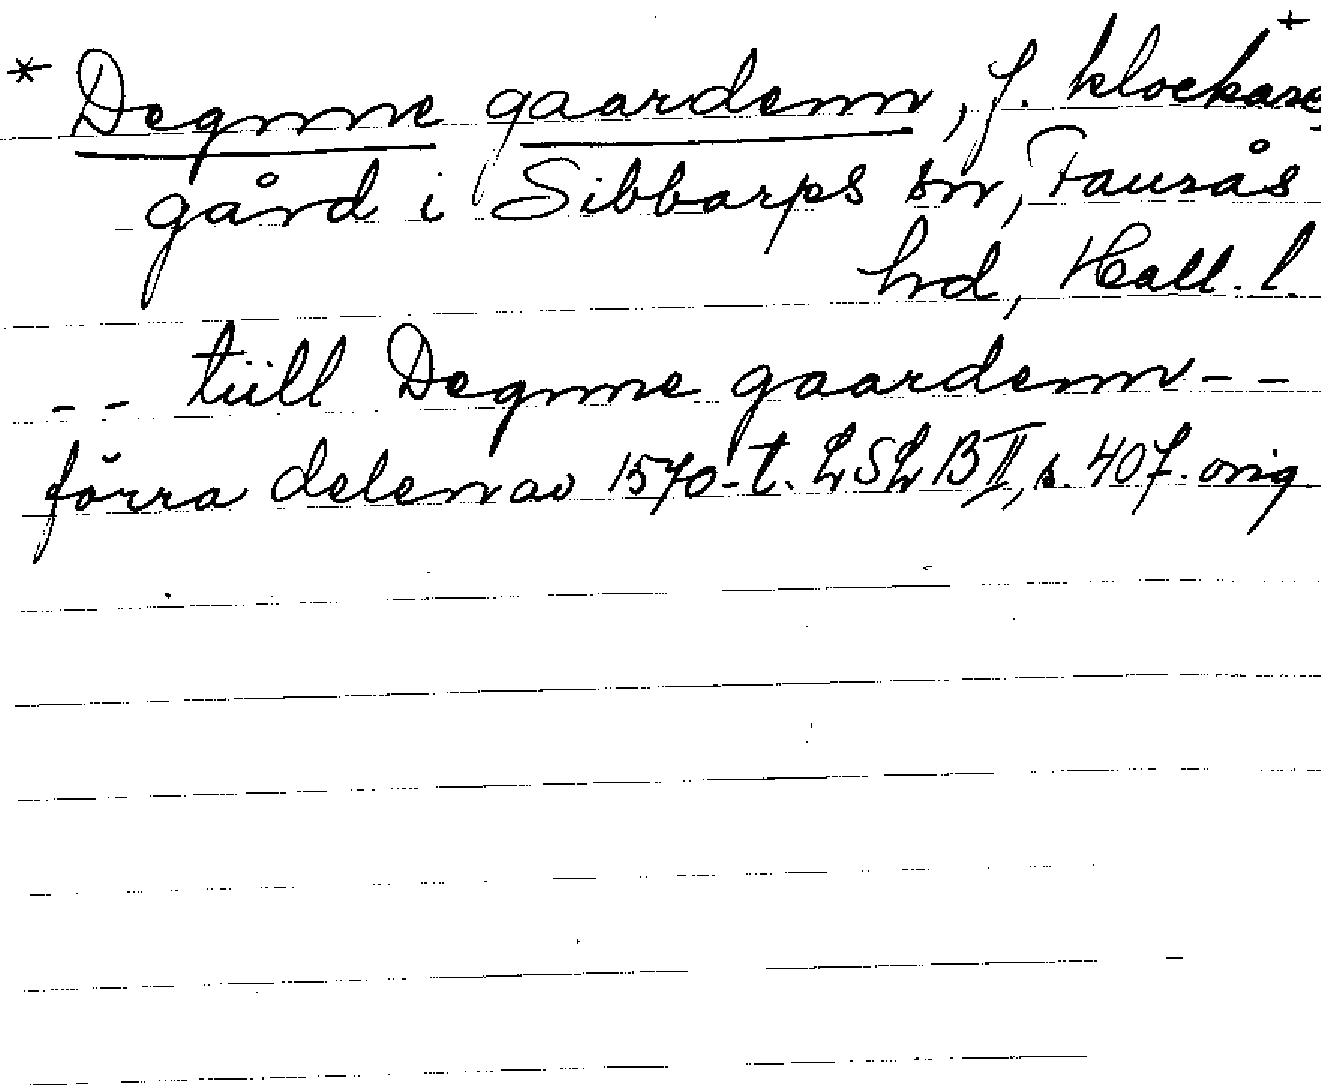 +
* Degnne gaardenn, f. klockare
gård i Sibbarps sn, Faurås
hrd, Hall. l.
-- tiill Degnne gaardenn --
förra delen av 1570-t. LSLB II, s. 407. orig